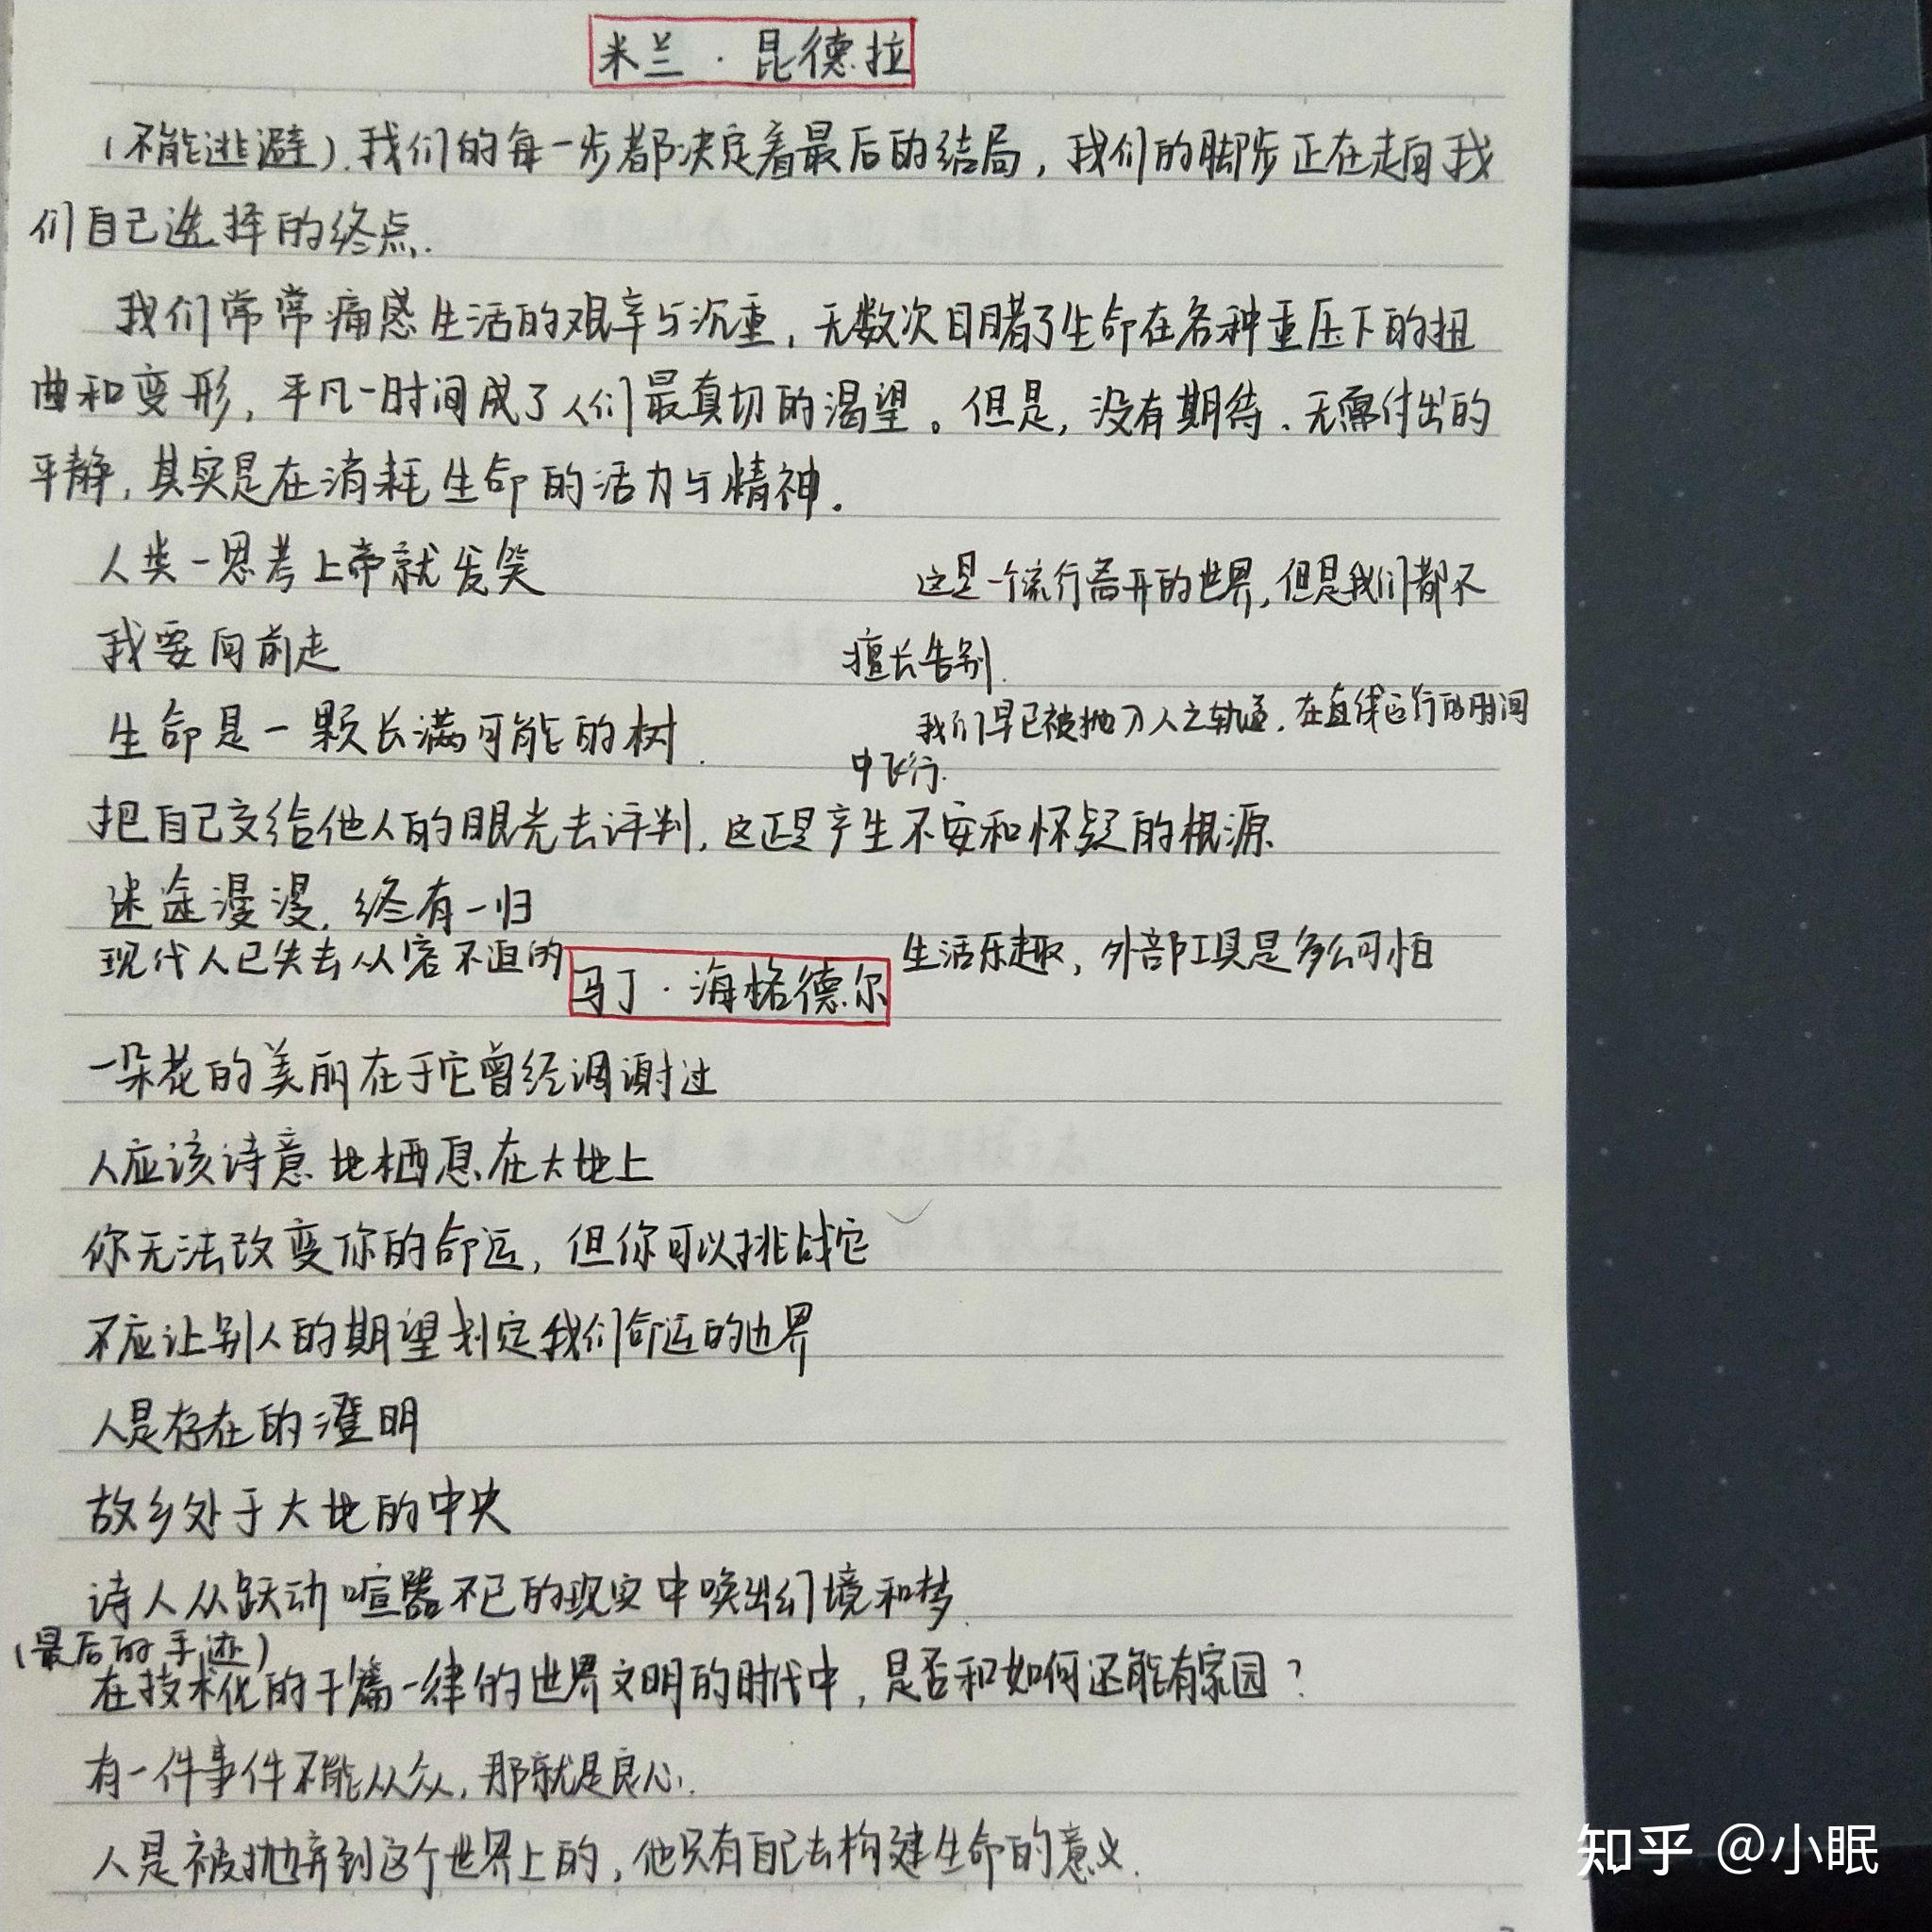 米兰·昆德拉
(不能逃避).我们的每一步都决定着最后的结局，我们的脚步正在走向我
们自己选择的终点.
我们常常痛感生活的艰辛与沉重，无数次目睹了生命在各种重压下的扭
曲和变形，平凡一时间成了人们最真切的渴望。但是，没有期待、无需付出的
平静，其实是在消耗生命的活力与精神.
人类一思考上帝就发笑
这是一个流行离开的世界,但是我们都不
擅长告别.
我要向前走
生命是一颗长满可能的树.
我们早已被抛 人之轨道.在直线运行的时间
中飞行.
把自己交给他人的眼光去评判,这正是产生不安和怀疑的根源.
迷途漫漫,终有一归
现代人已失去从容不迫的 生活乐趣,外部工具是多么可怕
马丁·海格德尔
一朵花的美丽在于它曾经凋谢过
人应该诗意地栖息在大地上
你无法改变你的命运,但你可以挑战它
不应让别人的期望划定我们命运的边界
人是存在的澄明
故乡处于大地的中央
诗人从跃动喧嚣不已的现实中唤出幻境和梦.
(最后的手迹)
在技术化的千篇一律的世界文明的时代中,是否和如何还能有家园?
有一件事件不能从众,那就是良心.
人是被抛弃到这个世界上的,他只有自己去构建生命的意义.
知乎 @小眠